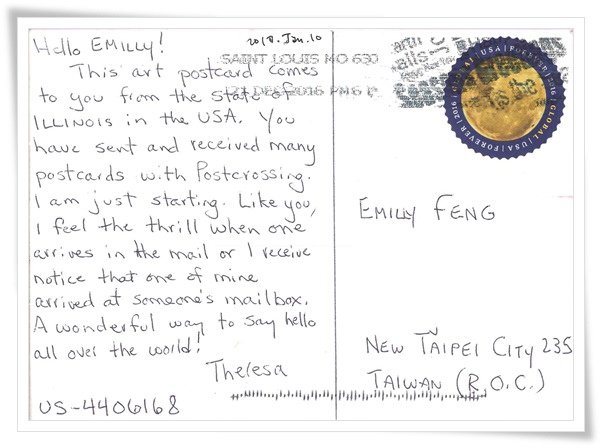 Hello EMILLY!
2018. Jan. 10
This art postcard comes
to you from the state of
ILLINOIS in the USA. You
have sent and received many
postcards with Postcrossing.
I am just starting. Like you,
I feel the thrill when one
arrives in the mail or I receive
notice that one of mine
arrived at someone's mailbox.
A wonderful way to say hello
all over the world!
Theresa
US-4406168
SAINT LOUIS MO 630
DEC 2016 PM 6
GLOBAL | USA | FOREVER | 2016 | GLOBAL | USA | FOREVER | 2016
EMILLY FENG
NEW TAIPEI CITY 235
TAIWAN (R.O.C.)